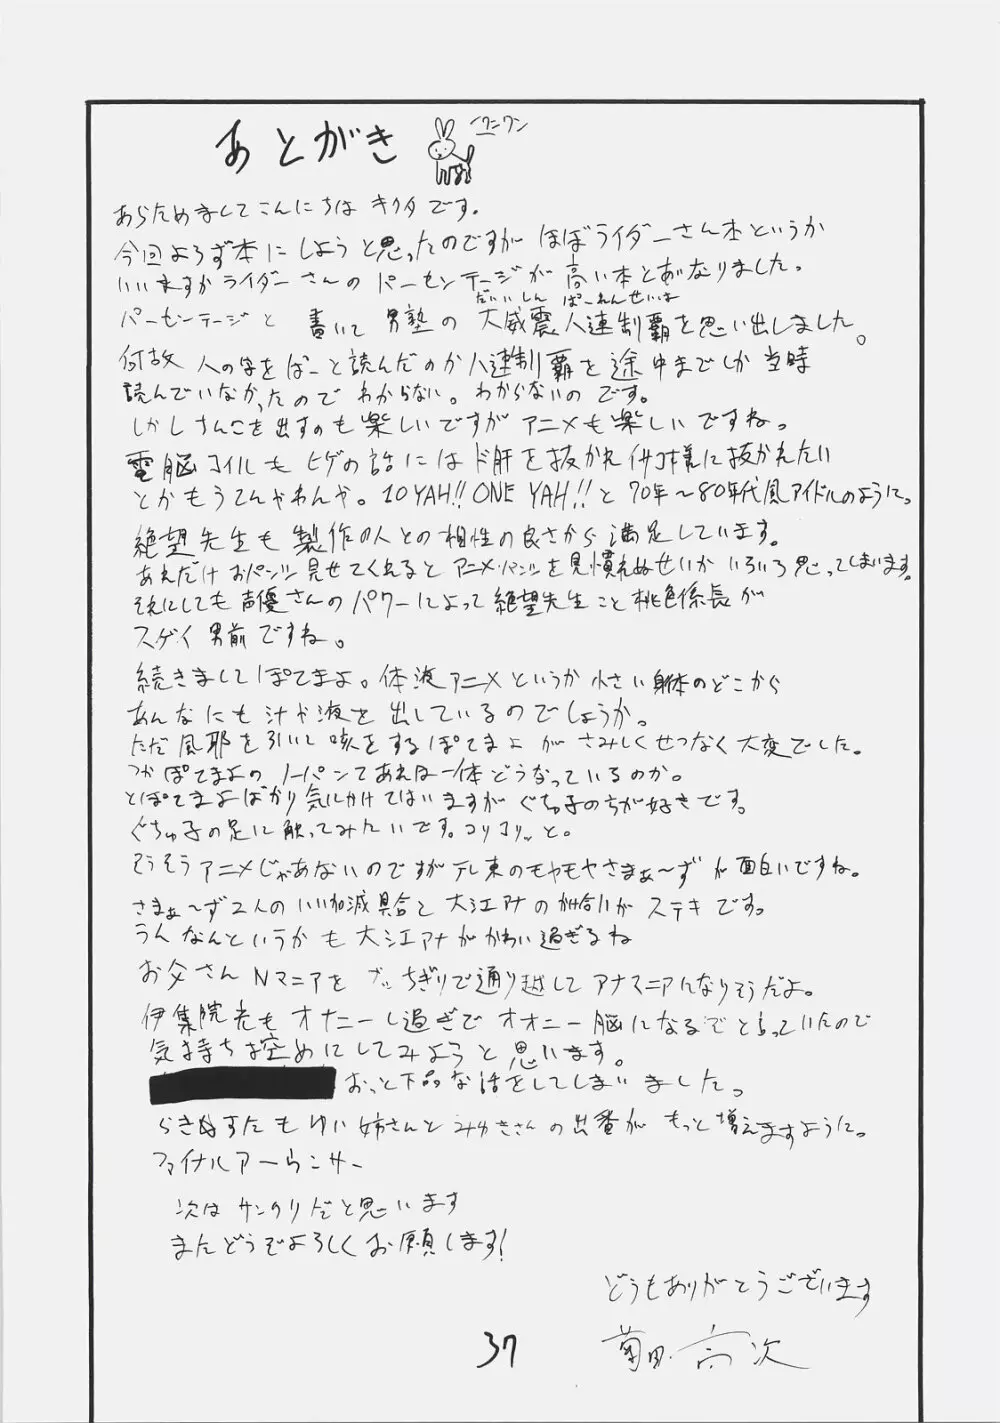 あとがき
ワンワン
あらためましてこんにちは キクタです。
今回よろず本にしようと思ったのですが ほぼライダーさん本というか
いいますかライダーさんの パーセンテージが高い本とあいなりました。
だいいしん ぱーれんせいは
パーセンテージと 書いて 男塾の 大威震八連制覇を思い出しました。
何故 人のほをばーと読んだのか八連制覇を途中までしか当時
読んでいなかったのでわからない。わからないのです。
しかしさんこを出すのも楽しいですがアニメも楽しいですね。
電脳コイルも ヒゲの話には ド肝を抜かれイサコ様に抜かれたい
とかもうてんやわんや。10YAH!! ONE YAH!!と70年〜80年代風アイドルのように。
絶望先生も製作の人との相性の良さから満足しています。
あれだけおパンツ見せてくれるとアニメ・パンツを見慣れぬせいかいろいろ思ってしまいます。
それにしても声優さんのパワーによって絶望先生こと桃色係長が
スゲイ男前ですね。
続きましてぽてまよ。体液アニメというか小さい身体のどこから
あんなにも汁か液を出しているのでしょうか。
ただ風邪を引いて咳をするぽてまよがさみしくせつなく大変でした。
つかぽてまよのノーパンてあれは一体どうなっているのか。
とぽてまよばかり気にかけてはいますがぐちゅ子のちが好きです。
ぐちゅ子の足に触ってみたいです。コリコリッと。
そうそうアニメじゃあないのですがテレ東のモヤモヤさまぁ〜ずが面白いですね。
さまぁ〜ず2人のいい加減具合と大江アナの具合がステキです。
うんなんというかも大江アナがかわい過ぎるね
お父さんNマニアをブッちぎりで通り越してアナマニアになりそうだよ。
伊集院光もオナニーし過ぎでオオニー脳になるでと言っていたので
気持ち控めにしてみようと思います。
おっと下品な話をしてしまいました。
らき☆すたもゆい姉さんとみゆきさんの出番がもっと増えますように。
ファイナルアーらンサー
次はサンクリだと思います
またどうぞよろしくお願します!
どうもありがとうございます
菊田・高次
37